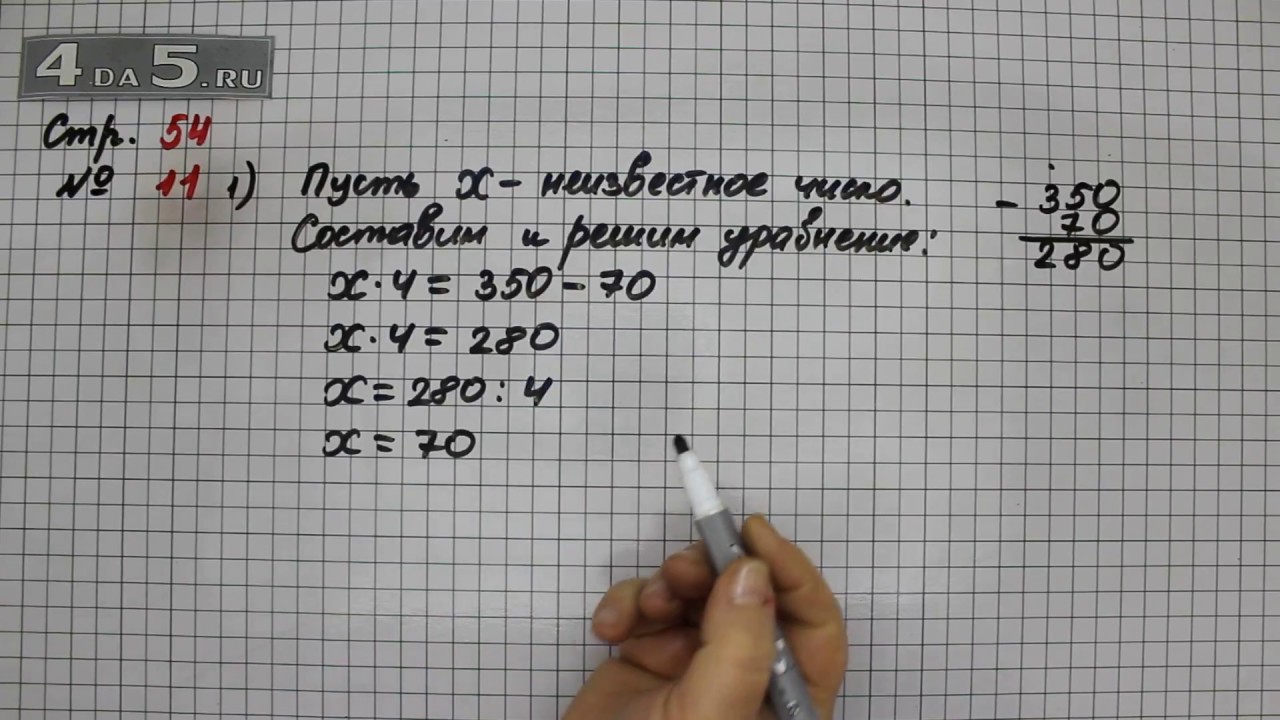 4DA5.RU
Стр. 54
№ 11 1) Пусть х - неизвестное число.
Составим и решим уравнение:
х · 4 = 350 - 70
х · 4 = 280
х = 280 : 4
х = 70
- 350
70
280